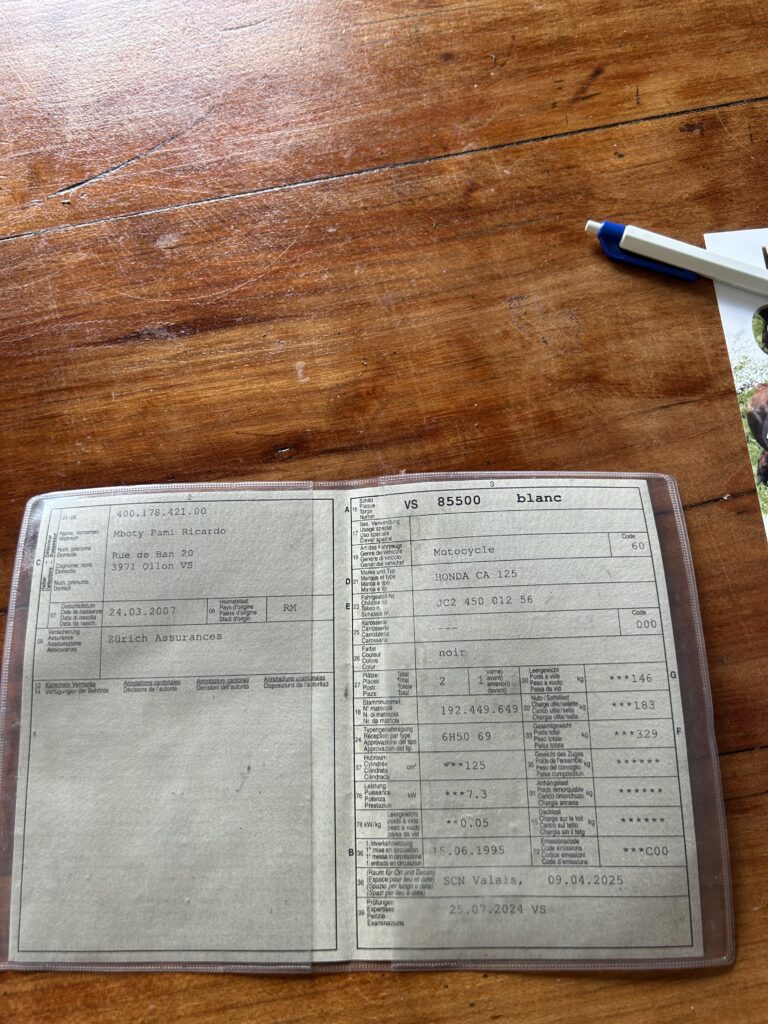 2
01-06
400.178.421.00
C
Name, Vornamen
Wohnort
Nom, prénoms
Domicile
Cognome, nomi
Domicilio
Num, prenums
Domicil
Mboty Pami Ricardo
Rue de Ban 20
3971 Ollon VS
07
Geburtsdatum
Date de naissance
Data di nascita
Data da nasch.
24.03.2007
08
Heimatstaat
Pays d'origine
Paese d'origine
Stadi d'origin
RM
09
Versicherung
Assurance
Assicurazione
Assicuranza
Zürich Assurances
13
14
Kantonale Vermerke
Verfügungen der Behörde
Annotations cantonales
Décisions de l'autorité
Annotazioni cantonali
Decisioni dell'autorità
Annotaziuns chantunalas
Disposiziuns da l'autoritad
3
A
15
Schild
Plaque
Targa
Numer
VS 85500 blanc
17
Bes. Verwendung
Usage spécial
Uso speciale
Diever spezial
19
Art des Fahrzeugs
Genre de véhicule
Genere di veicolo
Gener dal vehichel
Motocycle
Code
60
D
21
Marke und Typ
Marque et type
Marca e tipo
Marca e tip
HONDA CA 125
E
23
Fahrgestell-Nr.
Châssis no
Telaio n.
Schassis nr.
JC2 450 012 56
25
Karosserie
Carrosserie
Carrozzeria
Carossaria
---
Code
000
26
Farbe
Couleur
Colore
Colur
noir
27
Plätze:
Places:
Posti:
Plazs:
Total
Total
Totale
Total
2
1
vorne)
avant)
anteriori)
davant)
30
Leergewicht
Poids à vide
Peso a vuoto
Paisa da vid
kg
***146
G
18
Stammnummer
N° matricule
N. di matricola
Nr. da matricla
192.449.649
32
Nutz-/Sattellast
Charge utile/sellette
Carico utile/sella
Chargia utila/sella
kg
***183
24
Typengenehmigung
Réception par type
Approvazione del tipo
Approvaziun dal tip
6H50 69
33
Gesamtgewicht
Poids total
Peso totale
Paisa totala
kg
***329
F
37
Hubraum
Cylindrée
Cilindrata
Cilindrada
cm³
***125
35
Gewicht des Zuges
Poids de l'ensemble
Peso del convoglio
Paisa cumposiziun
kg
******
76
Leistung
Puissance
Potenza
Prestaziun
kW
***7.3
31
Anhängelast
Poids remorquable
Carico rimorchiato
Chargia annexa
kg
******
78 kW/kg
Leergewicht
poids à vide
peso a vuoto
paisa da vid
**0.05
55
Dachlast
Charge sur le toit
Carico sul tetto
Chargia sin il tetg
kg
******
B
36
1. Inverkehrsetzung
1re mise en circulation
1a messa in circolazione
1. entrada en circulaziun
15.06.1995
72
Emissionscode
Code émissions
Codice emissioni
Code d'emissiuns
***C00
38
(Raum für Ort und Datum)
(Espace pour lieu et date)
(Spazio per luogo e data)
(Spazi per lieu e data)
SCN Valais, 09.04.2025
39
Prüfungen
Expertises
Perizie
Examinaziuns
25.07.2024 VS